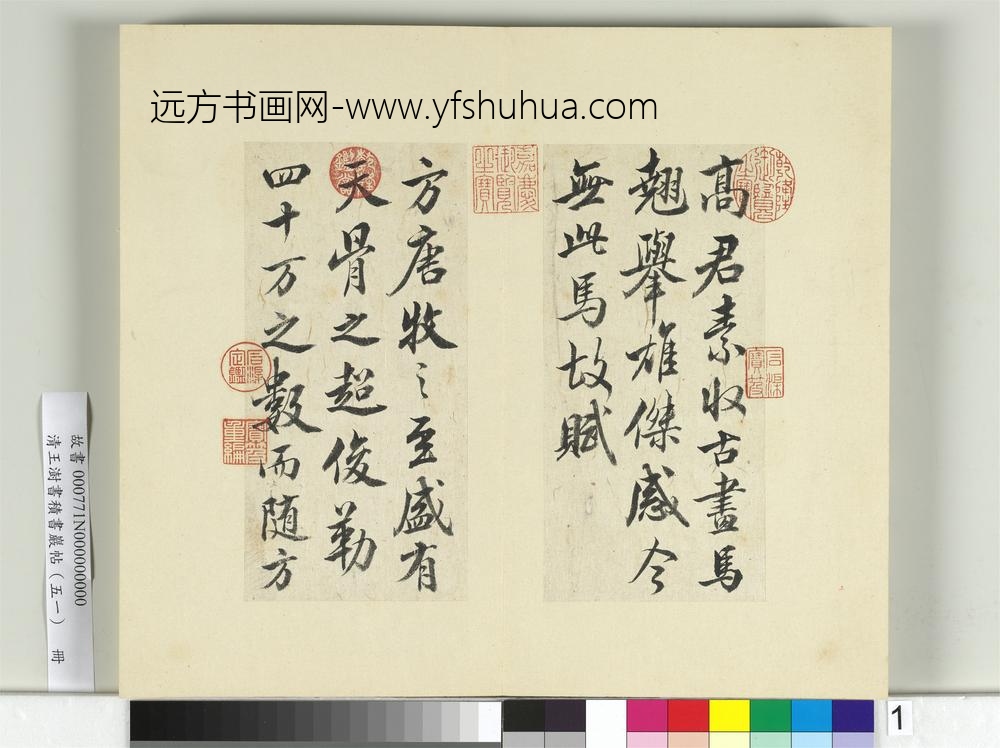 远方书画网-www.yfshuhua.com
高君素收古畫馬
翹舉雄傑感今
無此馬故賦
方唐牧之至盛有
天骨之超俊勒
四十万之數而随方
嘉慶御覽之寶
故書 000771N000000000
清王澍書積書巖帖(五一) 冊
1